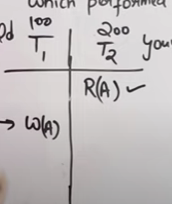 which performed
100 200
T1 T2 you
R(A) ✓
→ W(A)